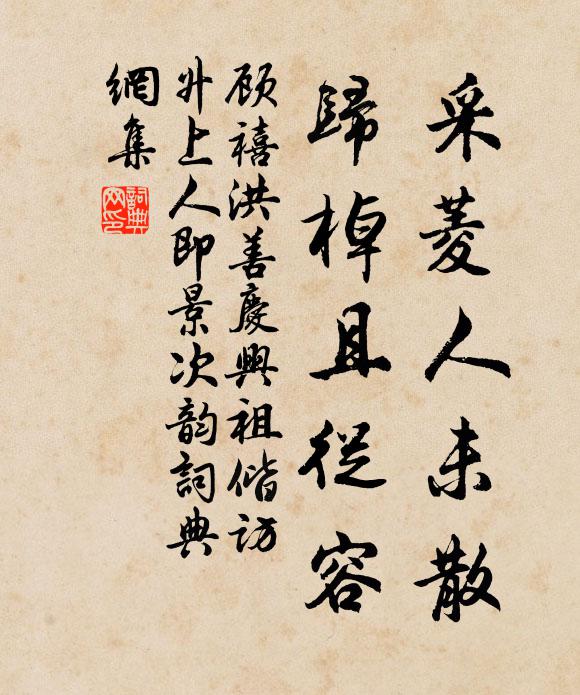 采菱人未散
歸棹且從容
顾禧洪善慶興祖偕訪
升上人即景次韵詞典
網集
詞典網印